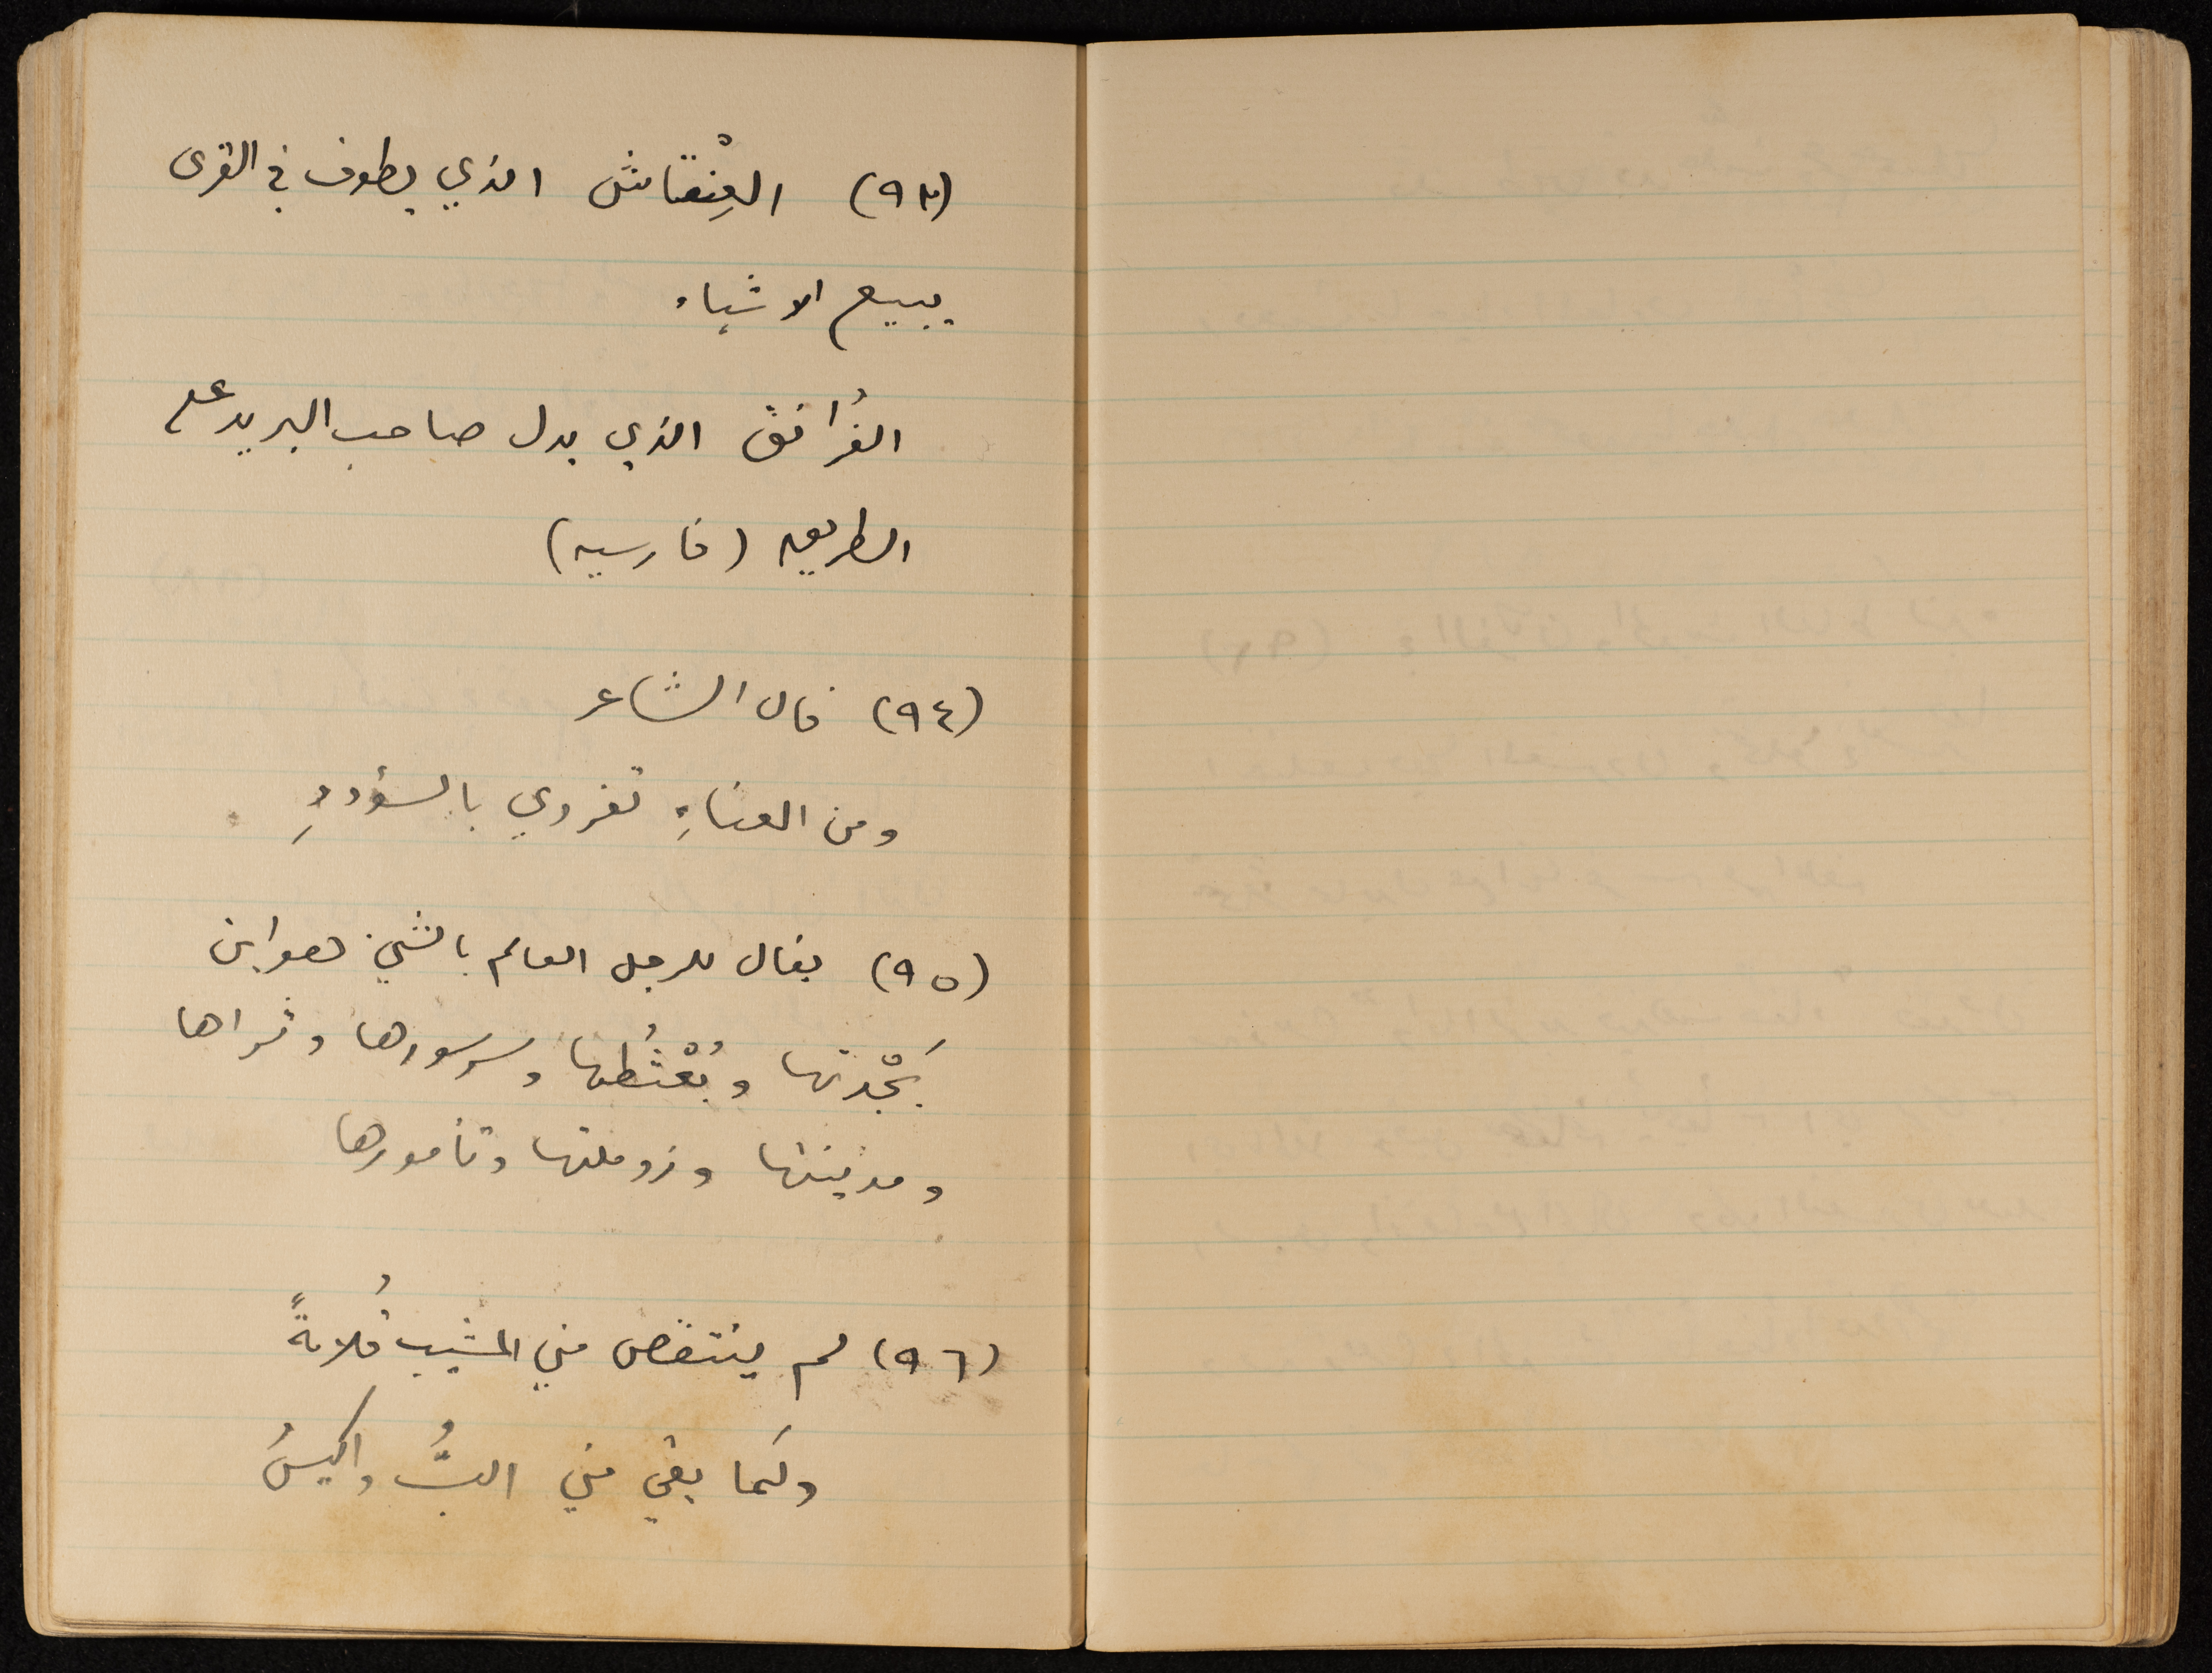 (٩٣) العِنْقاش الذي يطوف في القرى
يبيع الاشياء
الفُرانق الذي يدل صاحب البريد على
الطريق (فارسيه)
(٩٤) قال الشاعر
ومن العناءِ تفردي بالسؤددِ
(٩٥) يقال للرجل العالم بالشيء هو ابن
بَجْدتها وبُعْثُطها وسرسورها وثراها
ومدينتها وزوملتها وتامورها
(٩٦) لم ينتقص مني المشيب قُلامةً
ولَما بقي مني البُّ واكيسُ